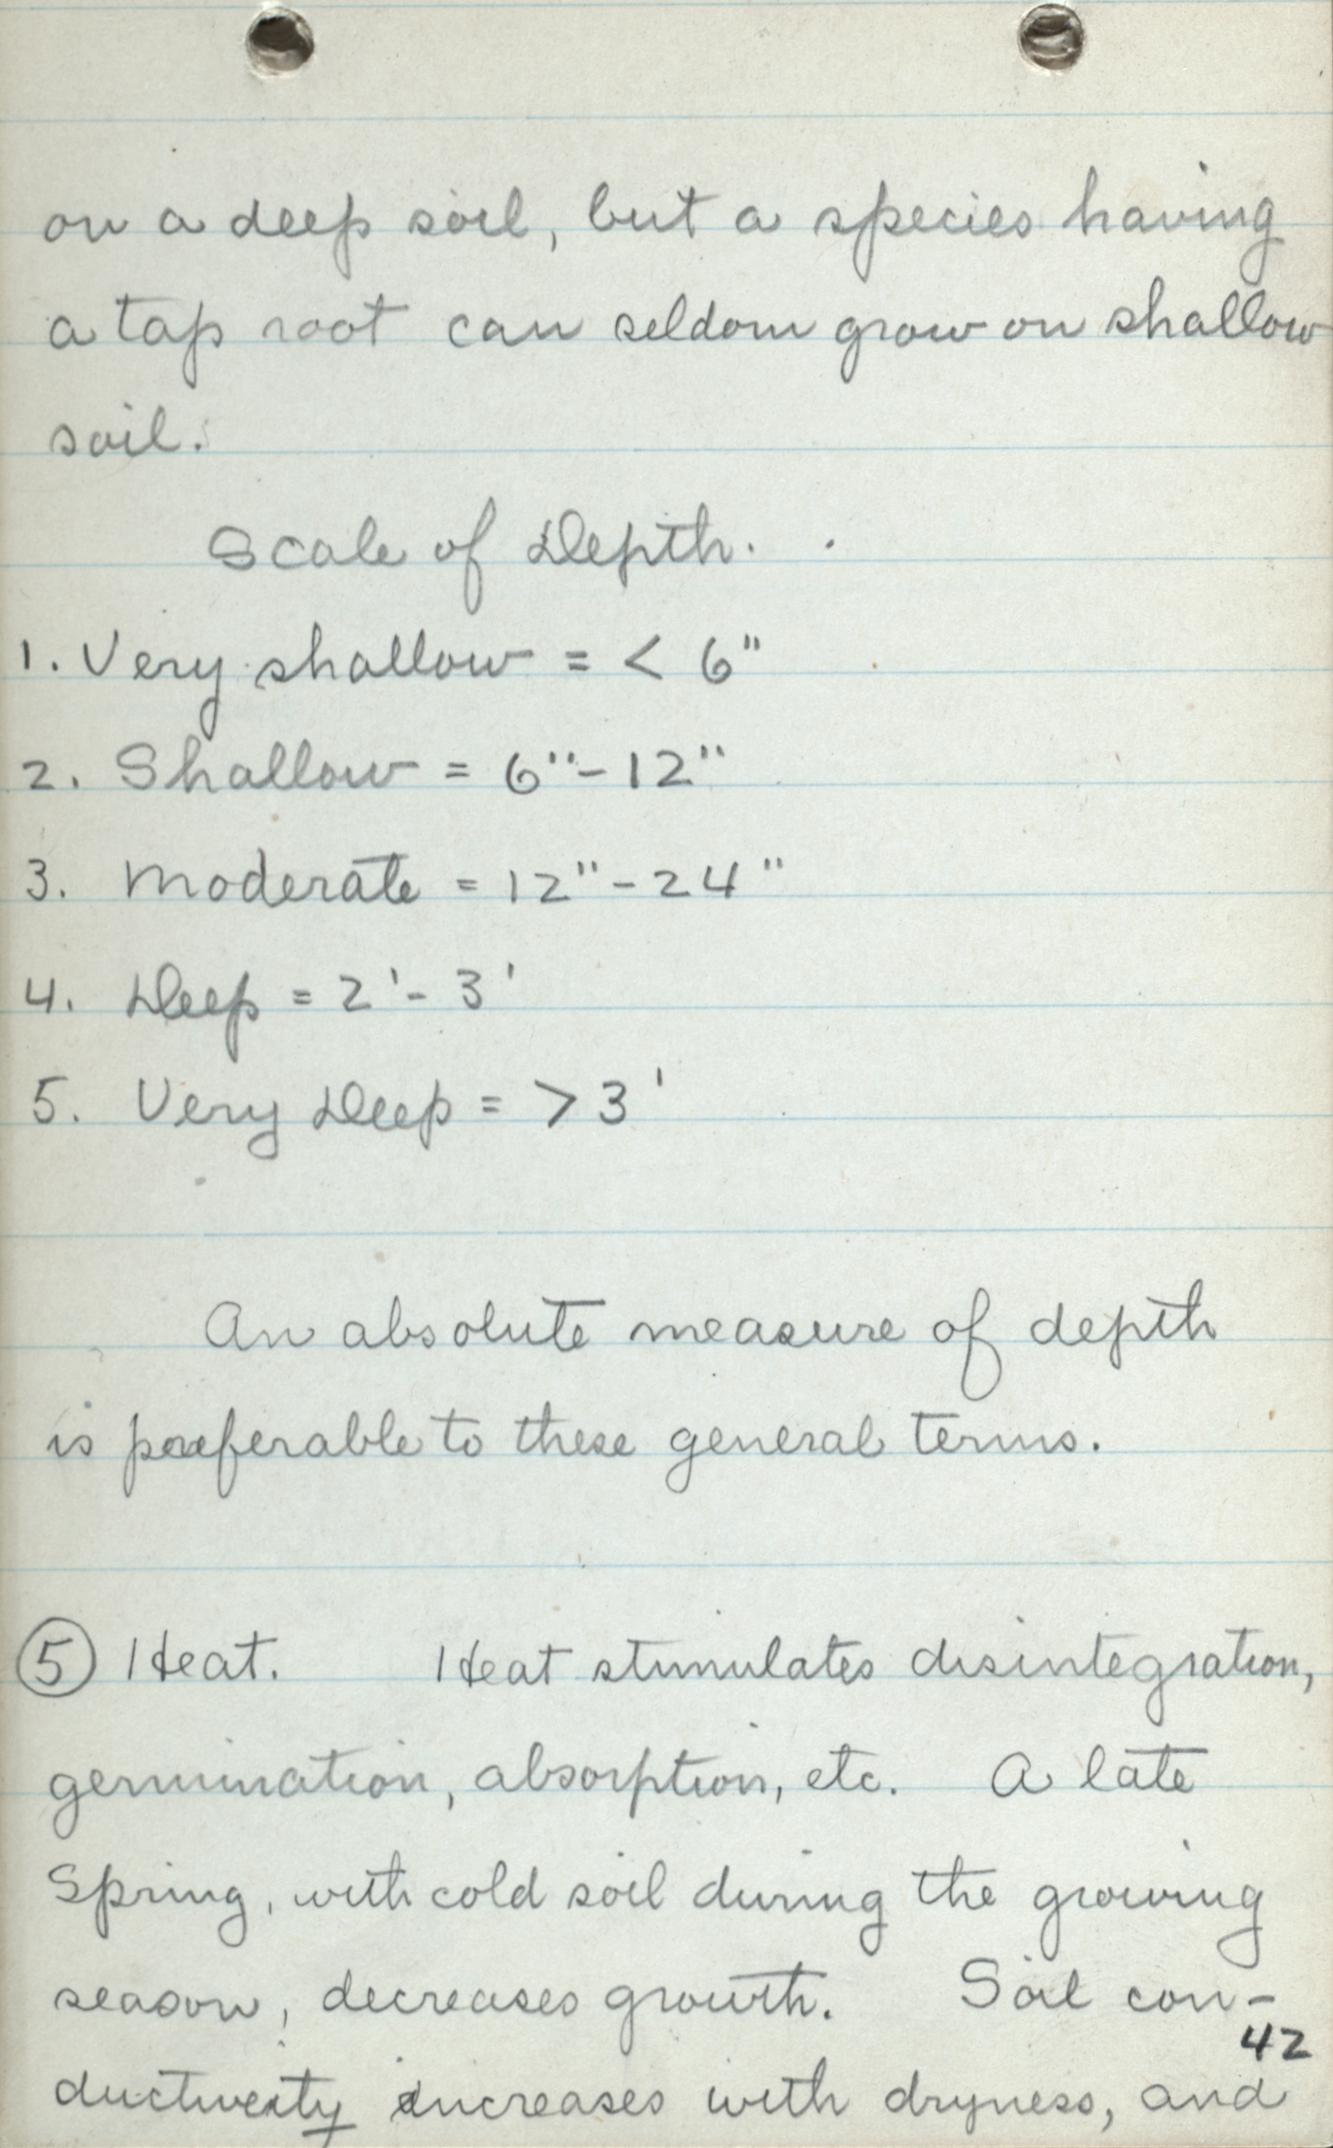 on a deep soil, but a species having
a tap root can seldom grow on shallow
soil.
Scale of Depth.
1. Very shallow = < 6"
2. Shallow = 6"-12"
3. Moderate = 12"-24"
4. Deep = 2'-3'
5. Very Deep = > 3'
An absolute measure of depth
is preferable to these general terms.
⑤ Heat. Heat stimulates disintegration,
germination, absorption, etc. A late
Spring, with cold soil during the growing
season, decreases growth. Soil con-
42
ductivity increases with dryness, and